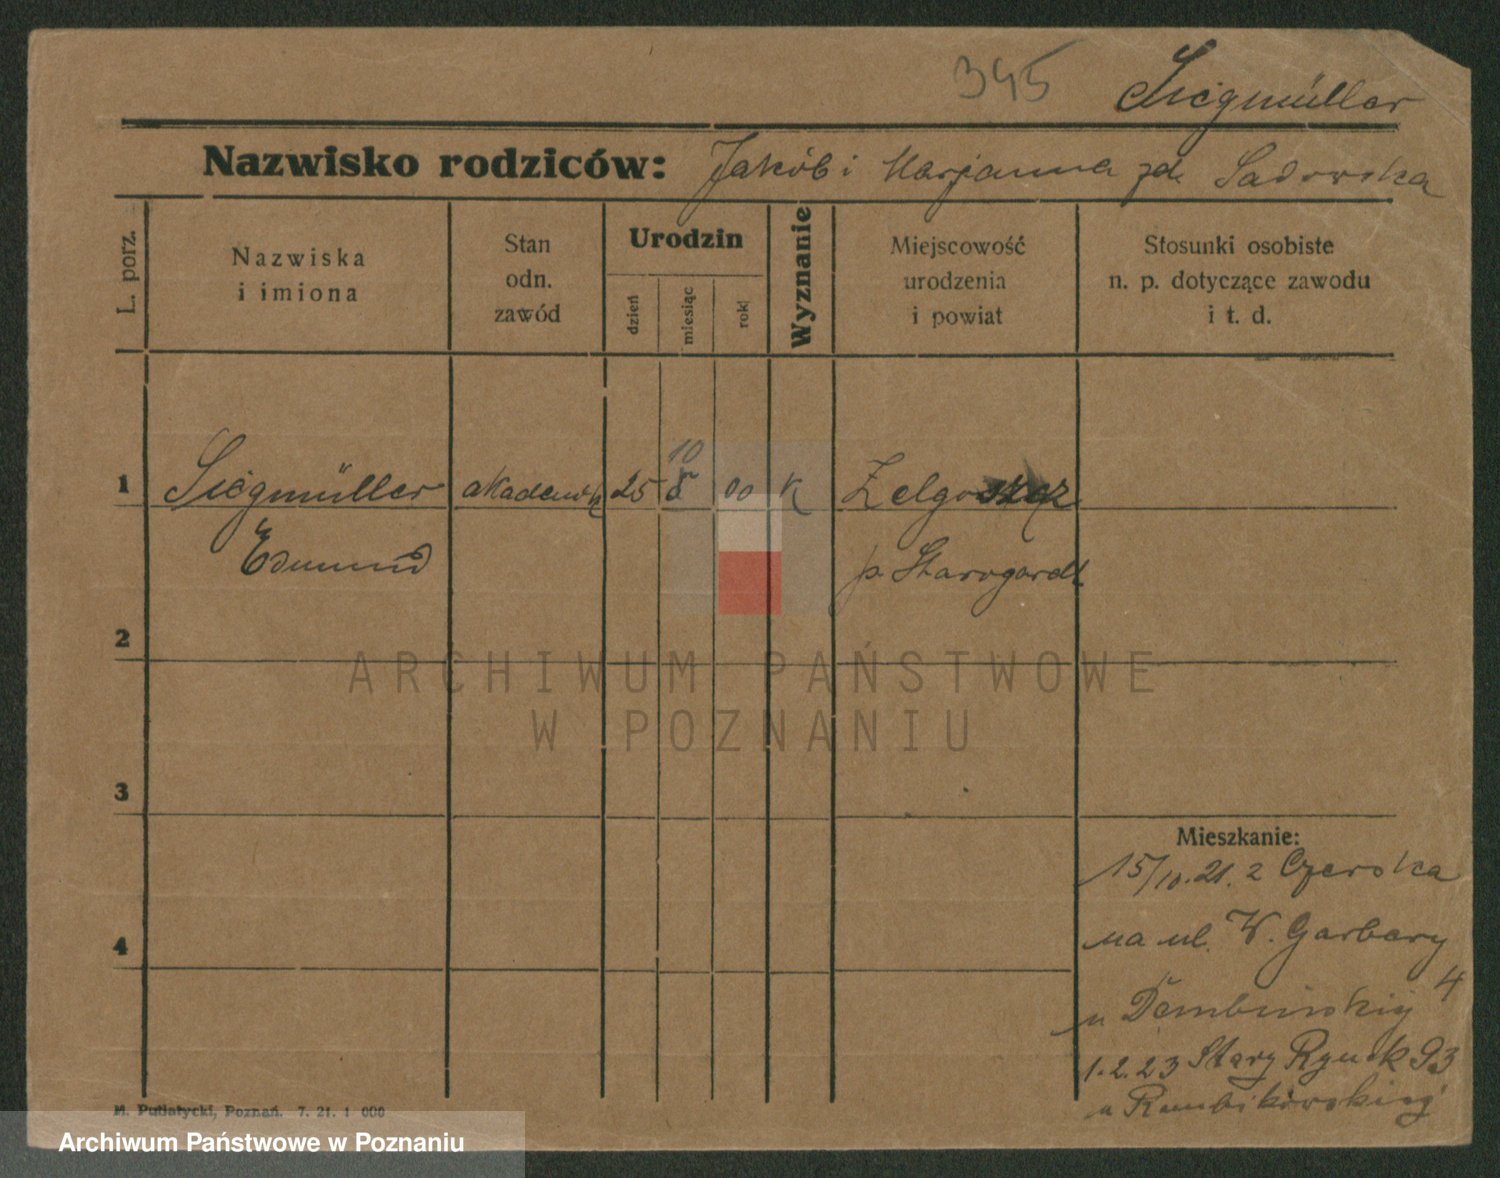 345
Siegmüller
Nazwisko rodziców: Jakób i Marjanna zd. Sadowska
L. porz.
Nazwiska
i imiona
Stan
odn.
zawód
Urodzin
dzień
miesiąc
rok
Wyznanie
Miejscowość
urodzenia
i powiat
Stosunki osobiste
n. p. dotyczące zawodu
i t. d.
10
1 Siegmüller akademik 25 00 K
Edmund p. Starogard
2
ARCHIWUM PAŃSTWOWE
W POZNANIU
3
Mieszkanie:
15/10.21. z Czerska
4 na ul. W. Garbary
4
u Dembińskiej
1.2.23 Stary Rynek 93
u
M. Putiatycki, Poznań. 7. 21. 1 000
Archiwum Państwowe w Poznaniu